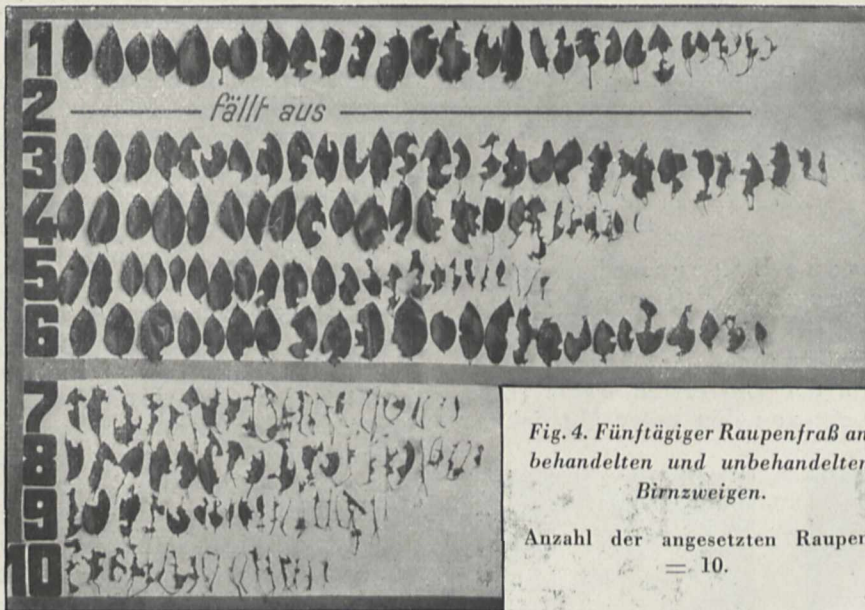 1
2 fällt aus
3
4
5
6
7
8
9
10
Fig. 4. Fünftägiger Raupenfraß an
behandelten und unbehandelten
Birnzweigen.
Anzahl der angesetzten Raupen
= 10.